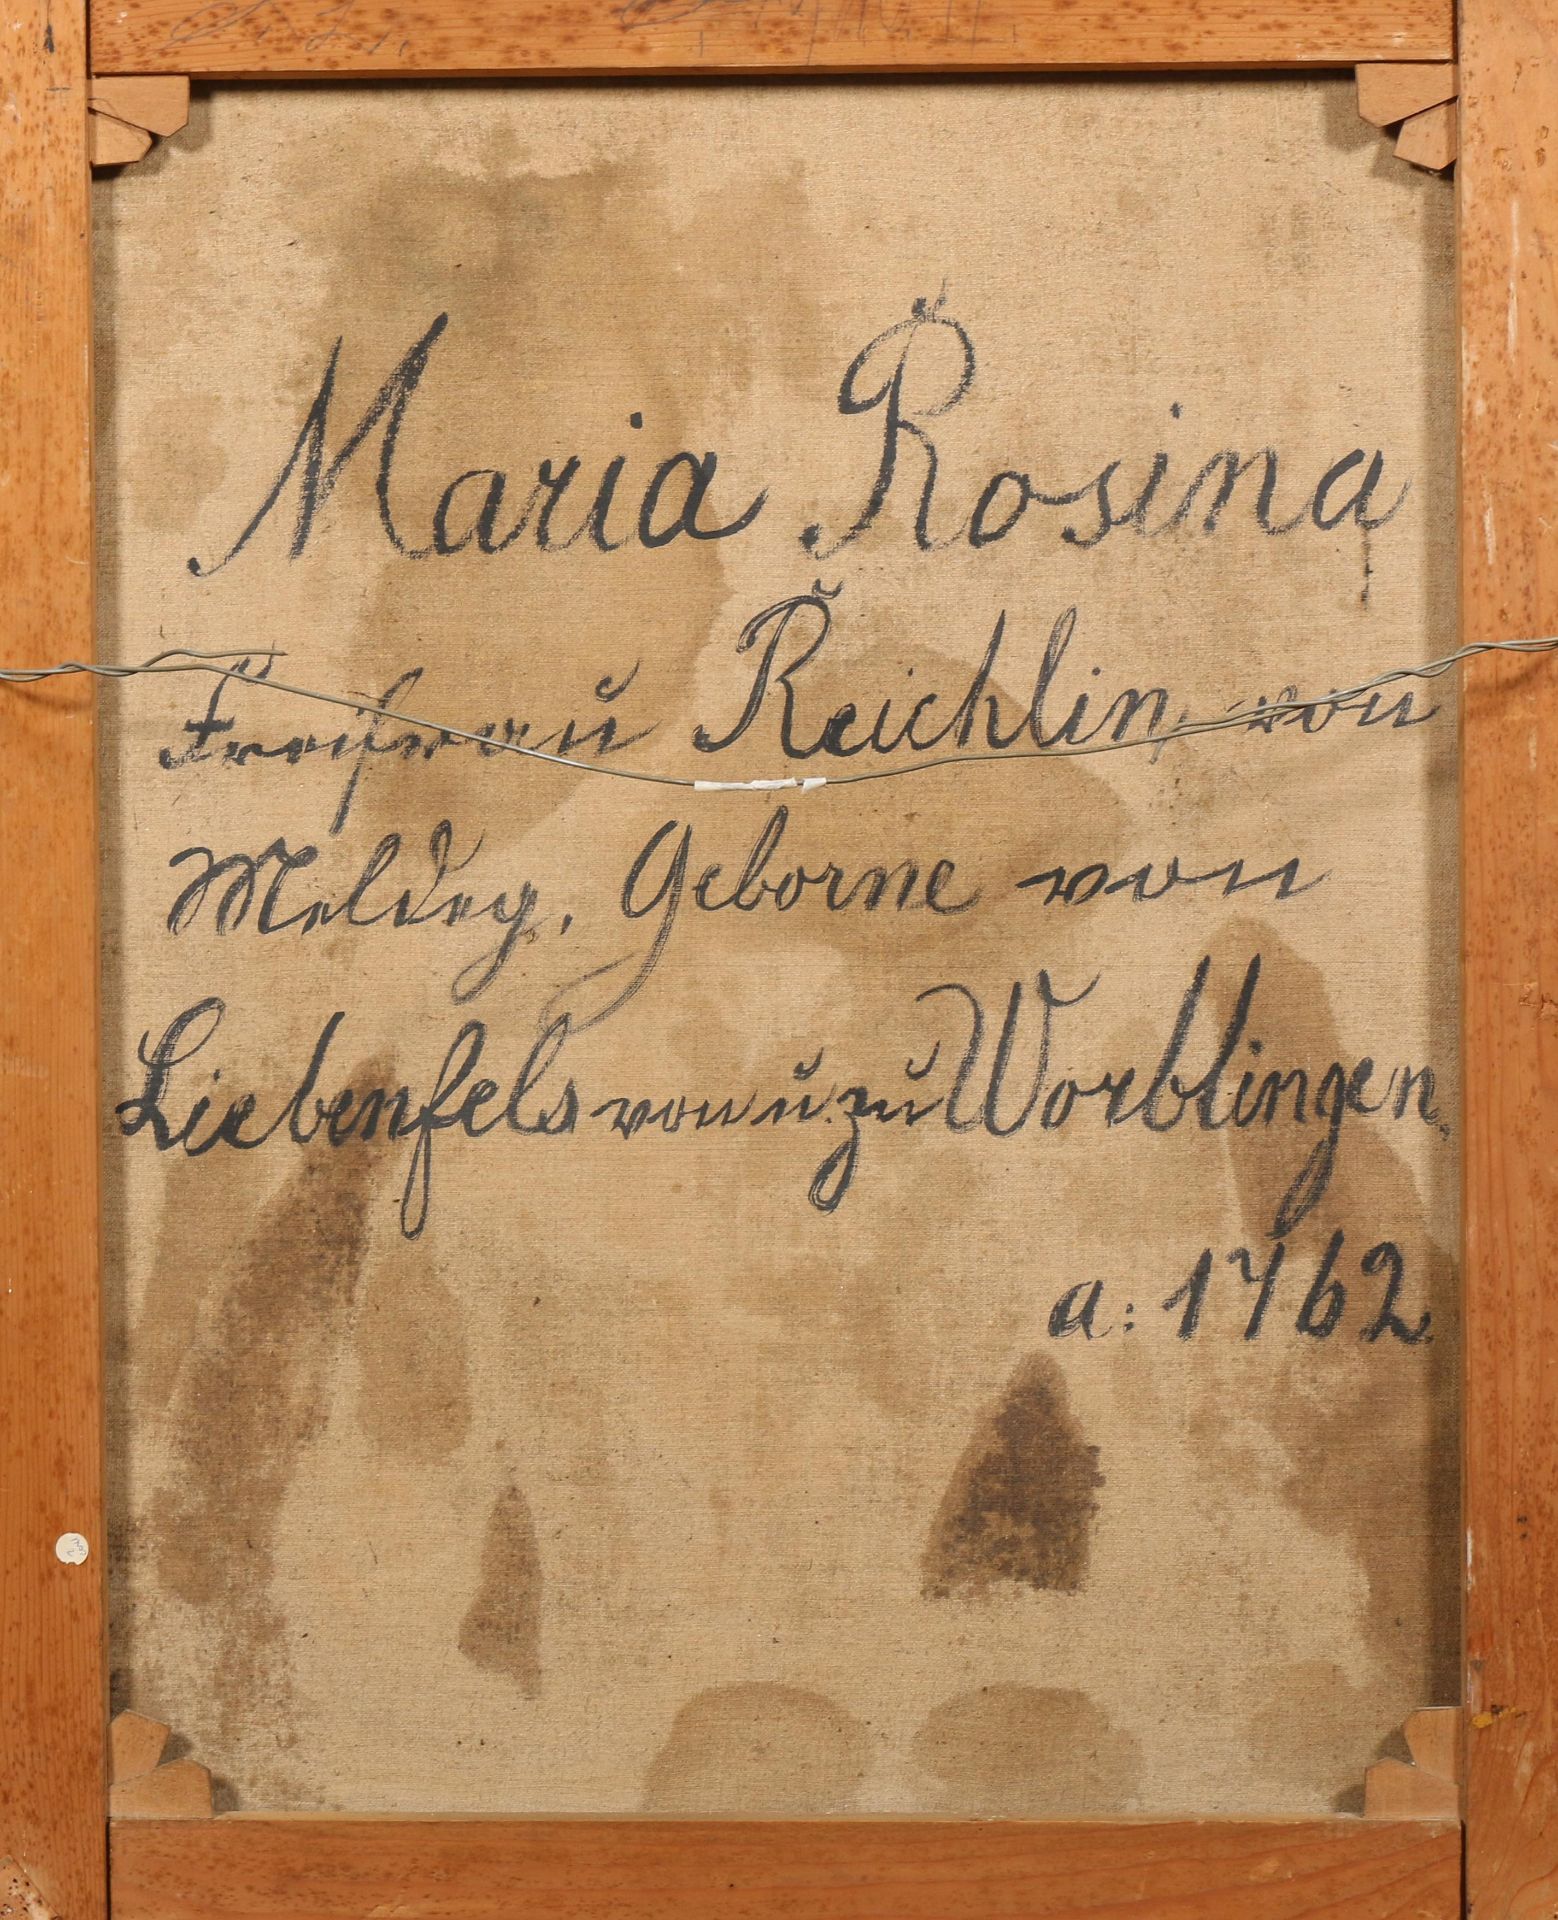 Maria Rosina
Freifrau Reichlin von
Meldeg, Geborne von
Liebenfels von u. zu Worblingen.
a: 1762